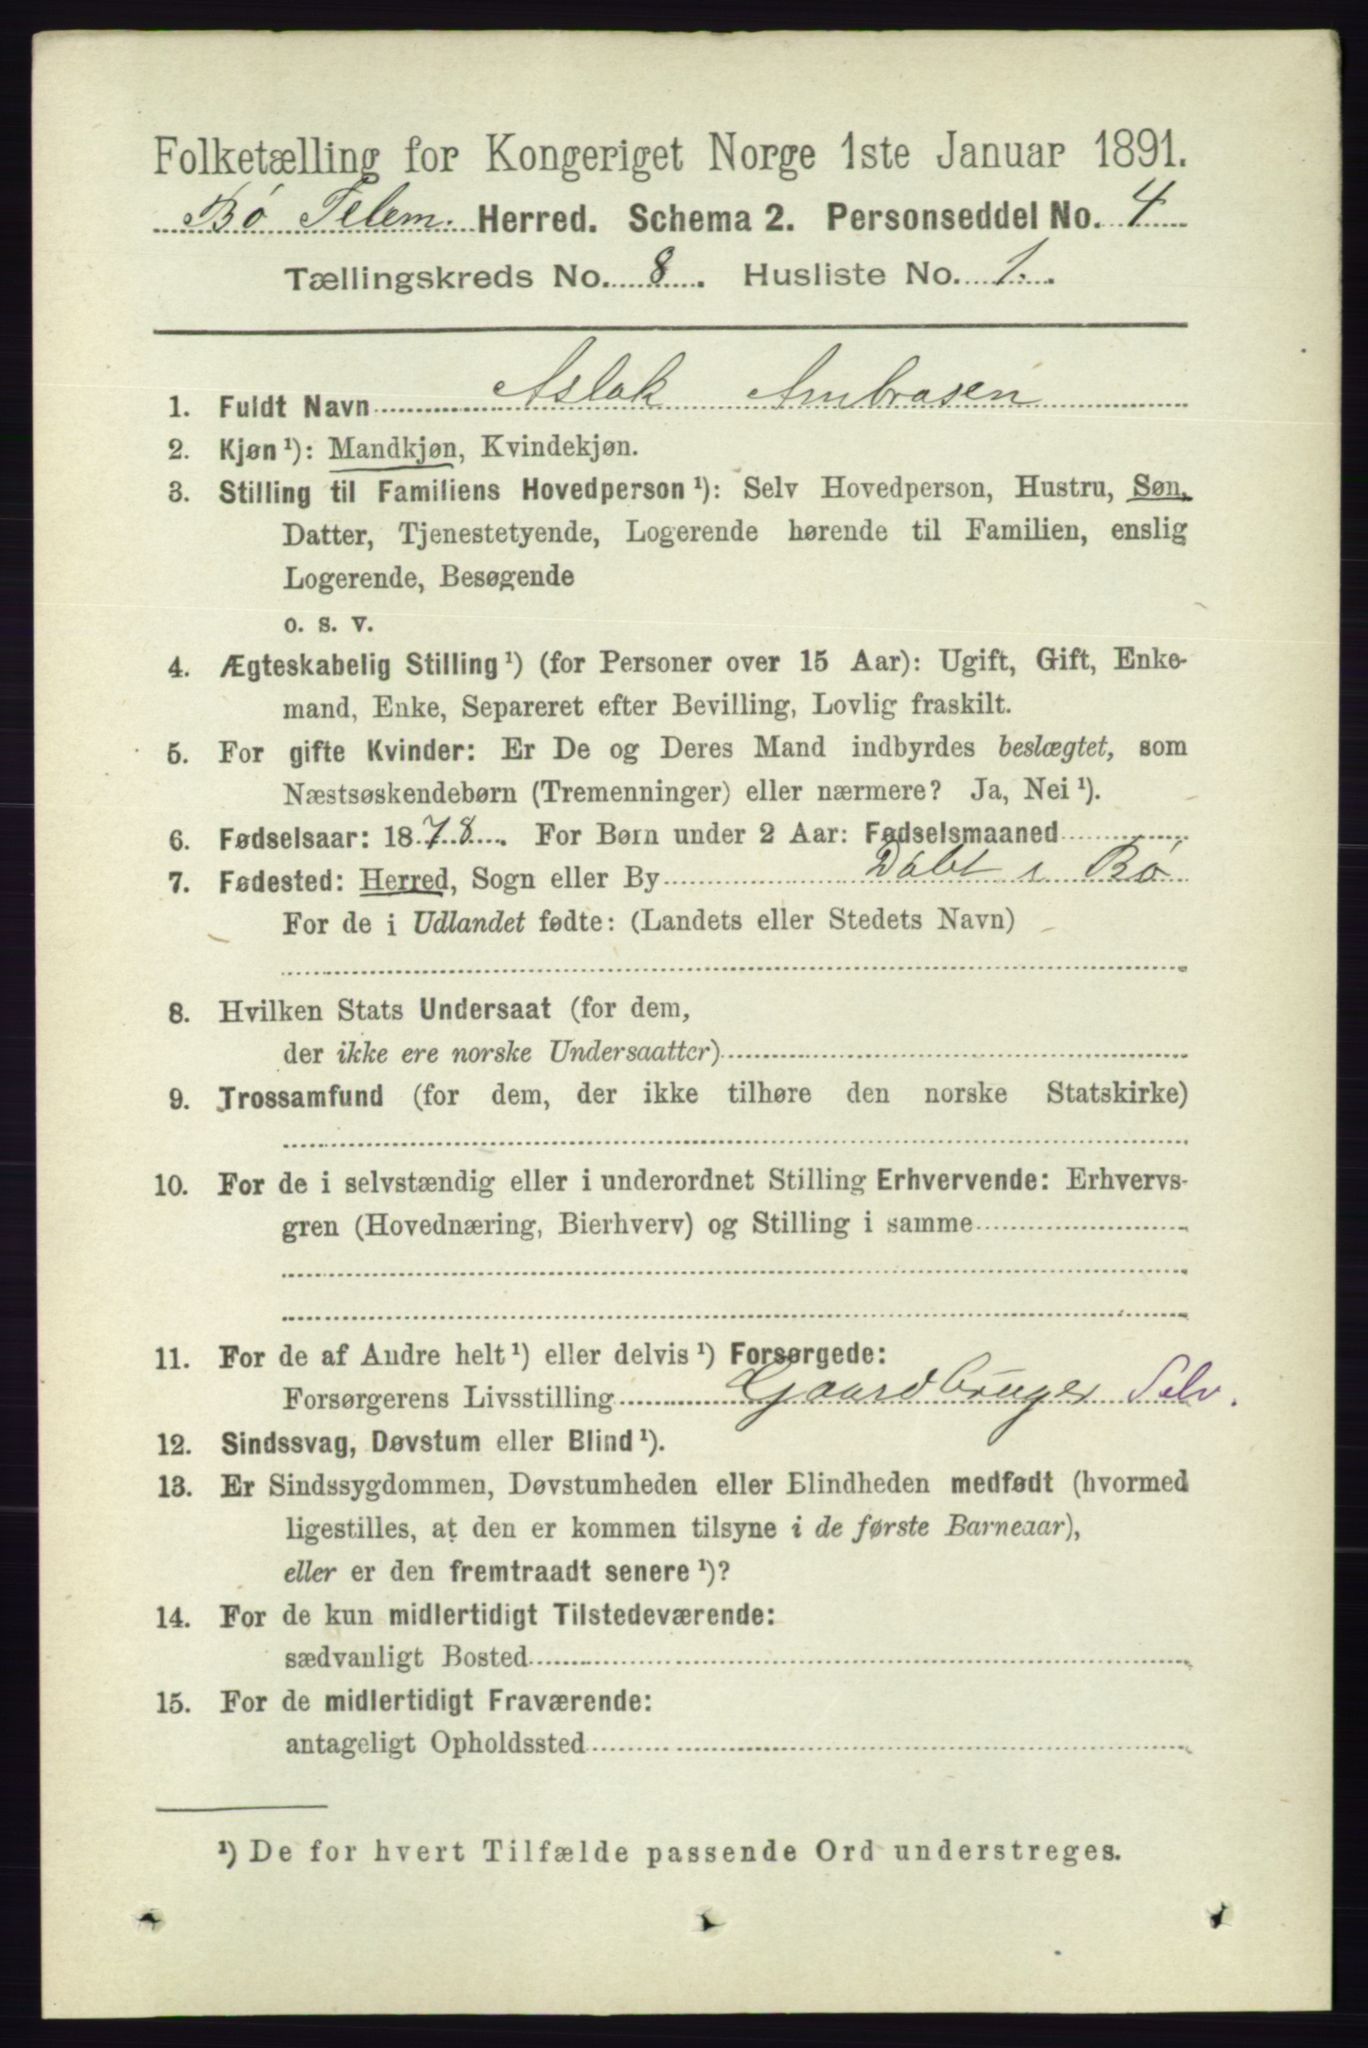 Folketælling for Kongeriget Norge 1ste Januar 1891.
Bø Telem. Herred. Schema 2. Personseddel No. 4
Tællingskreds No. 8. Husliste No. 1.
1. Fuldt Navn Aslak Ambrosen
2. Kjøn ¹): Mandkjøn, Kvindekjøn.
3. Stilling til Familiens Hovedperson ¹): Selv Hovedperson, Hustru, Søn,
Datter, Tjenestetyende, Logerende hørende til Familien, enslig
Logerende, Besøgende
o. s. v.
4. Ægteskabelig Stilling ¹) (for Personer over 15 Aar): Ugift, Gift, Enke-
mand, Enke, Separeret efter Bevilling, Lovlig fraskilt.
5. For gifte Kvinder: Er De og Deres Mand indbyrdes beslægtet, som
Næstsøskendebørn (Tremenninger) eller nærmere? Ja, Nei ¹).
6. Fødselsaar: 1878. For Børn under 2 Aar: Fødselsmaaned
7. Fødested: Herred, Sogn eller By Döbt i Bø
For de i Udlandet fødte: (Landets eller Stedets Navn)
8. Hvilken Stats Undersaat (for dem,
der ikke ere norske Undersaatter)
9. Trossamfund (for dem, der ikke tilhøre den norske Statskirke)
10. For de i selvstændig eller i underordnet Stilling Erhvervende: Erhvervs-
gren (Hovednæring, Bierhverv) og Stilling i samme
11. For de af Andre helt ¹) eller delvis ¹) Forsørgede:
Forsørgerens Livsstilling Gaardbruger Selv.
12. Sindssvag, Døvstum eller Blind ¹).
13. Er Sindssygdommen, Døvstumheden eller Blindheden medfødt (hvormed
ligestilles, at den er kommen tilsyne i de første Barneaar),
eller er den fremtraadt senere ¹)?
14. For de kun midlertidigt Tilstedeværende:
sædvanligt Bosted
15. For de midlertidigt Fraværende:
antageligt Opholdssted
¹) De for hvert Tilfælde passende Ord understreges.